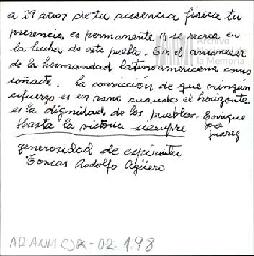 a 19 años de tu ausencia física tu
presencia es permanente y se recrea en
la lucha de este pueblo. En el amanecer
de la hermandad latinoamericana como
soñaste. La convicción de que ningún
esfuerzo es en vano cuando el horizonte
es la dignidad de los pueblos. Enrique
Hasta la victoria siempre José
Juárez
generosidad de espíritu
Tomás Rodolfo Agüero
la Memoria
ARANM CJPR-02.198